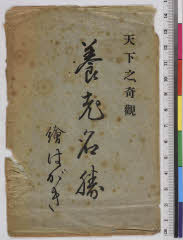 天下之奇觀
養老名勝
繪はがき